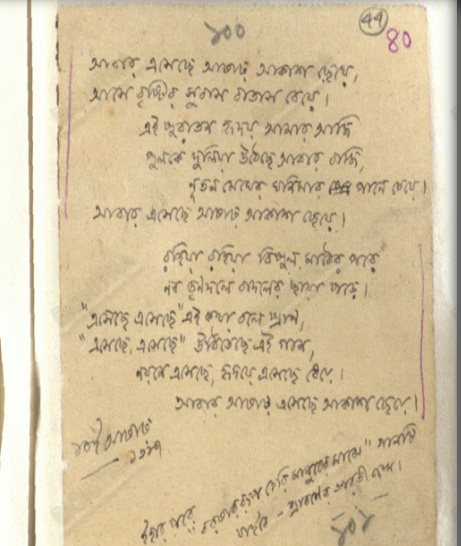 ১০০
44
80
আবার এসেছে আষাঢ় আকাশ ছেয়ে,
আসে বৃষ্টির সুবাস বাতাস বেয়ে।
এই পুরাতন হৃদয় আমার আজি
পুলকে দুলিয়া উঠিছে আবার বাজি,
নূতন মেঘের ঘনিমার পানে চেয়ে।
আবার এসেছে আষাঢ় আকাশ ছেয়ে।
রহিয়া রহিয়া বিপুল মাঠের পরে
নব তৃণদলে বাদলের ছায়া পড়ে।
"এসেছে এসেছে" এই কথা বলে প্রাণ,
"এসেছে, এসেছে" উঠিতেছে এই গান,
নয়নে এসেছে, হৃদয়ে এসেছে ধেয়ে।
আবার আষাঢ় এসেছে আকাশ ছেয়ে।
১০ই আষাঢ়
১৩১৭
ইহার পরে বরষার রূপ হেরি মানবের মাঝে" গানটি
যাইবে - শ্রাবণের ভারতী
১০১